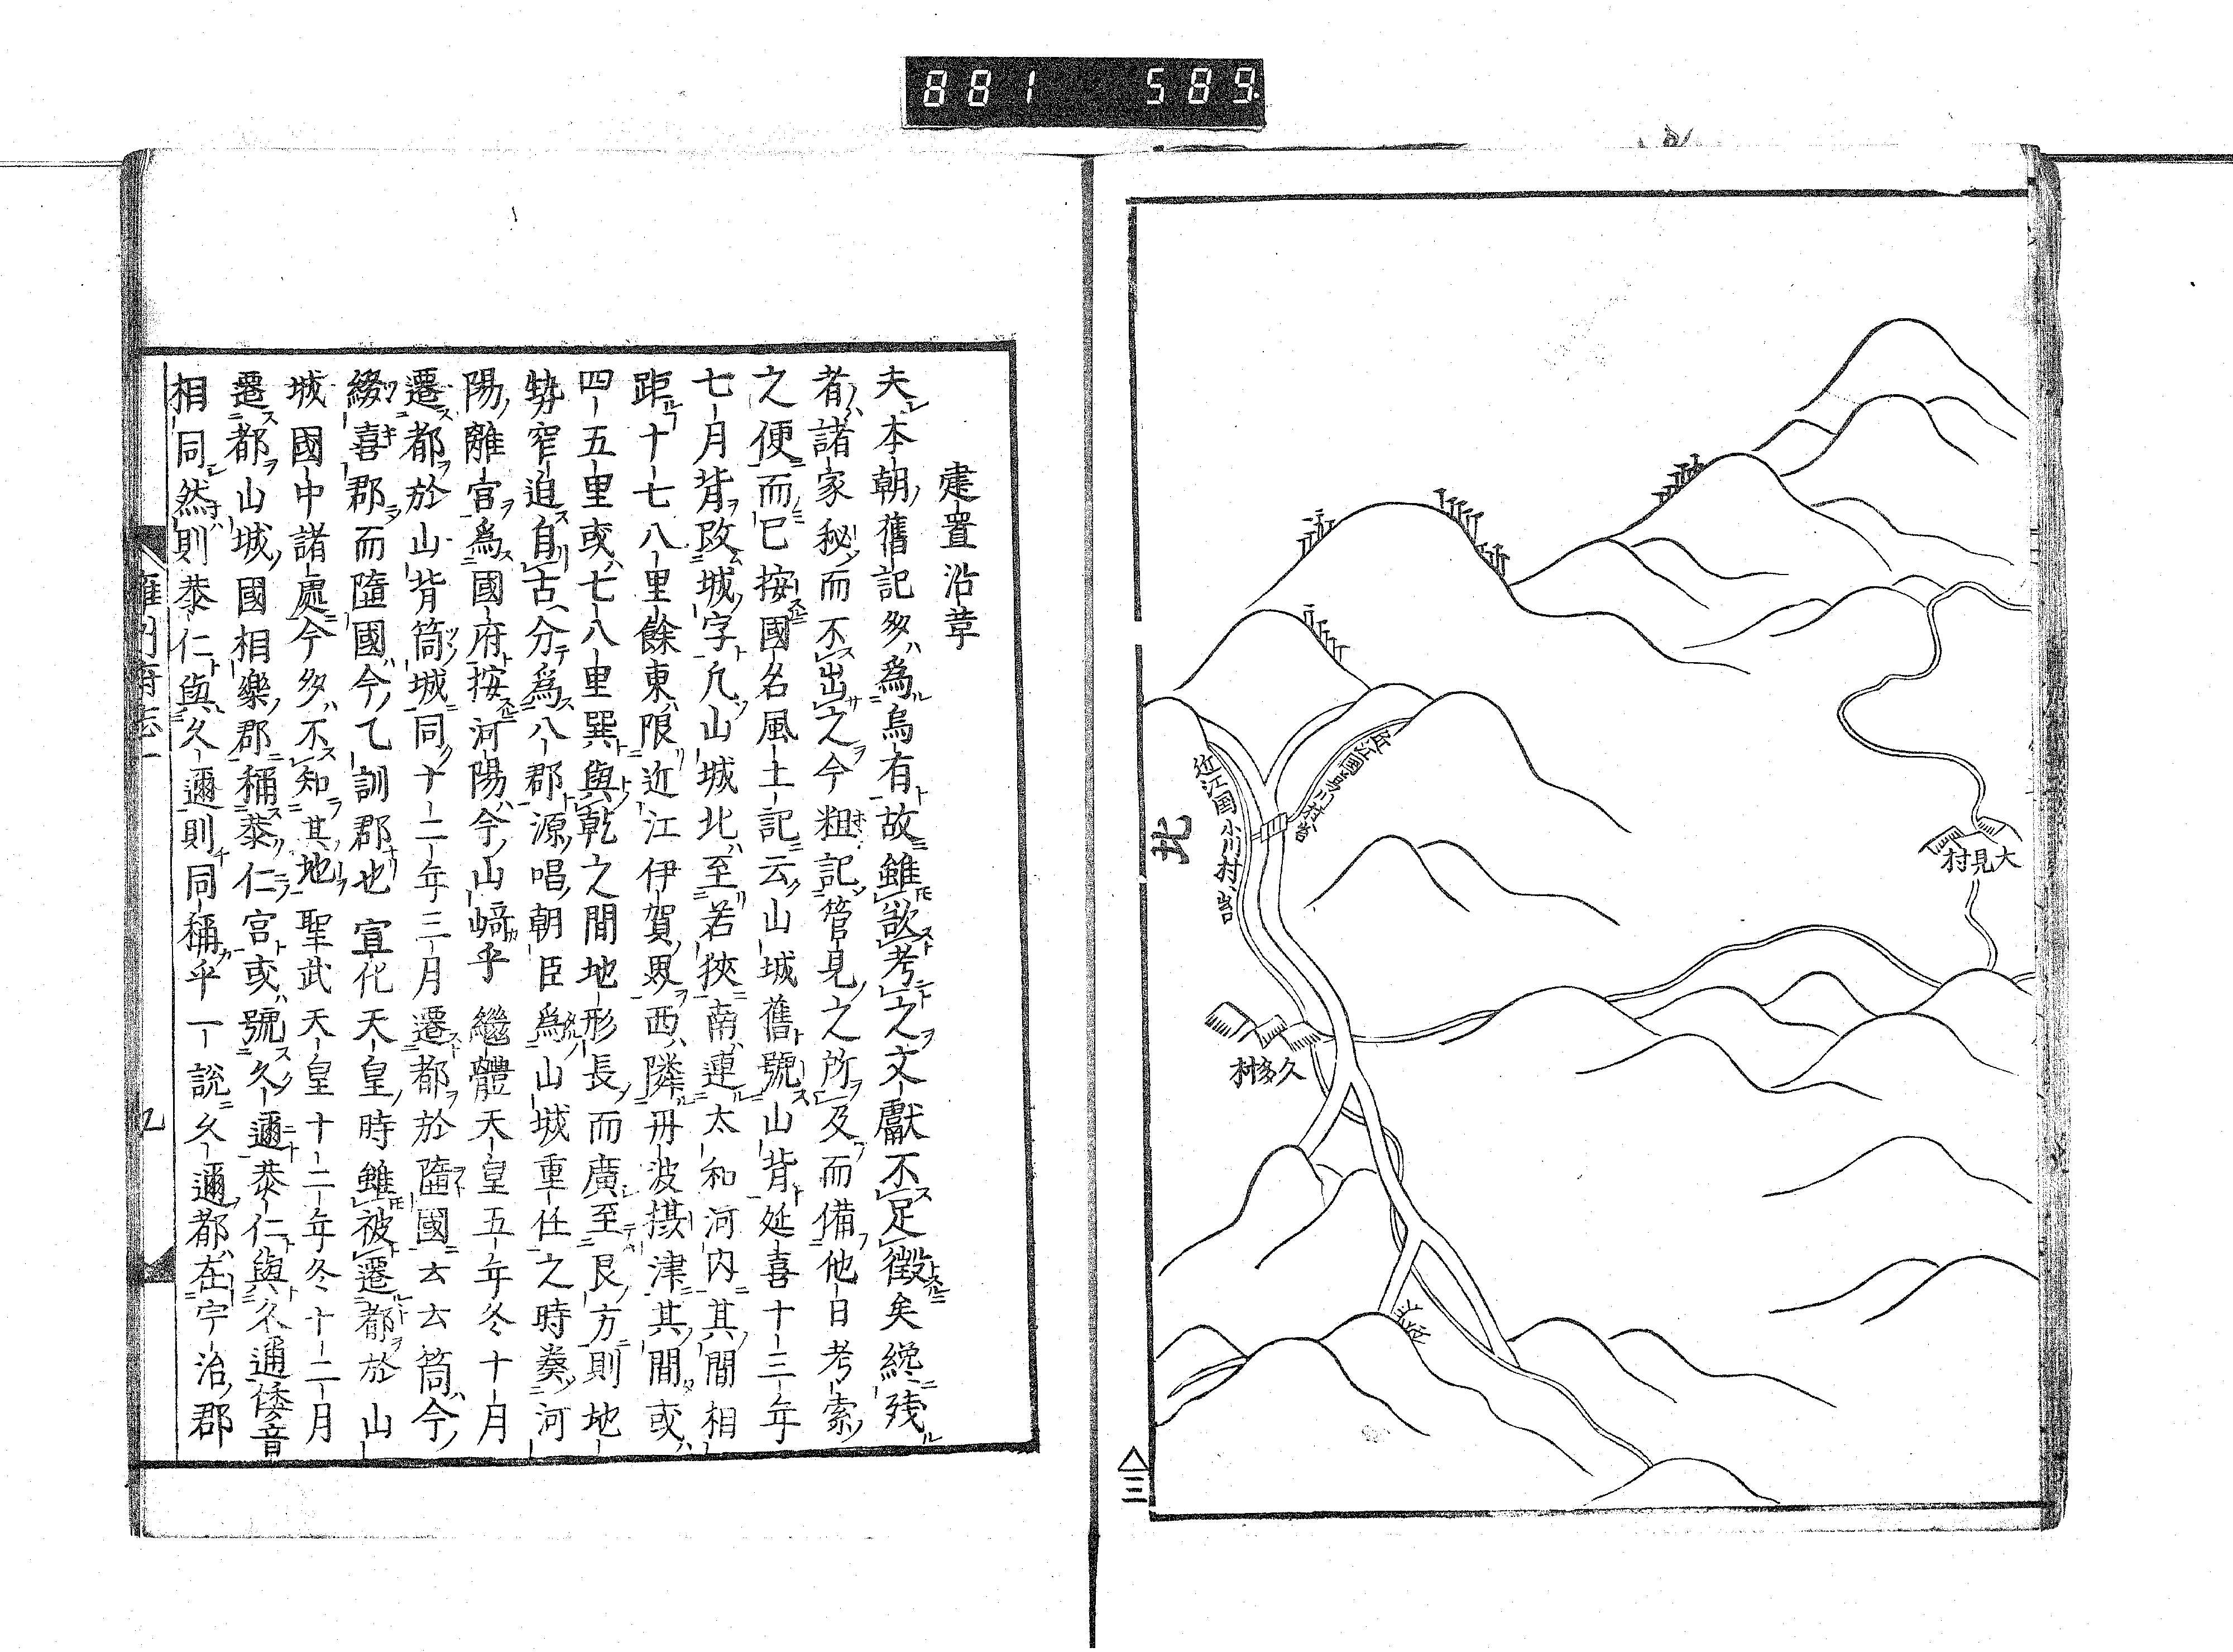 881 589
大見村
近江国小川村出
北
久多村
三
建置沿革
夫本朝舊記多為烏有故雖欲考之文獻不足徵矣纔殘
者諸家秘而不出之今粗記管見之所及而備他日考索
之便而已按國名風土記云山城舊號山背延喜十三年
七月背改城字凢山城北至若狹南連太和河内其間相
距十七八里餘東限近江伊賀界西隣丹波摂津其間或
四五里或七八里巽與乾之間地形長而廣至艮方則地
勢窄迫自古分為八郡源唱朝臣為山城重任之時奏河
陽離宮為國府按河陽今山﨑乎 繼體天皇五年冬十月
遷都於山背筒城同十二年三月遷都於墮國云云筒今
綴喜郡而墮國今乙訓郡也 宣化天皇時雖被遷都於山
城國中諸處今多不知其地 聖武天皇十二年冬十二月
遷都山城國相樂郡稱㳟仁宮或號久邇㳟仁與久邇倭音
相同然則㳟仁與久邇則同稱乎一說久邇都在宇治郡
雍州府志一
九